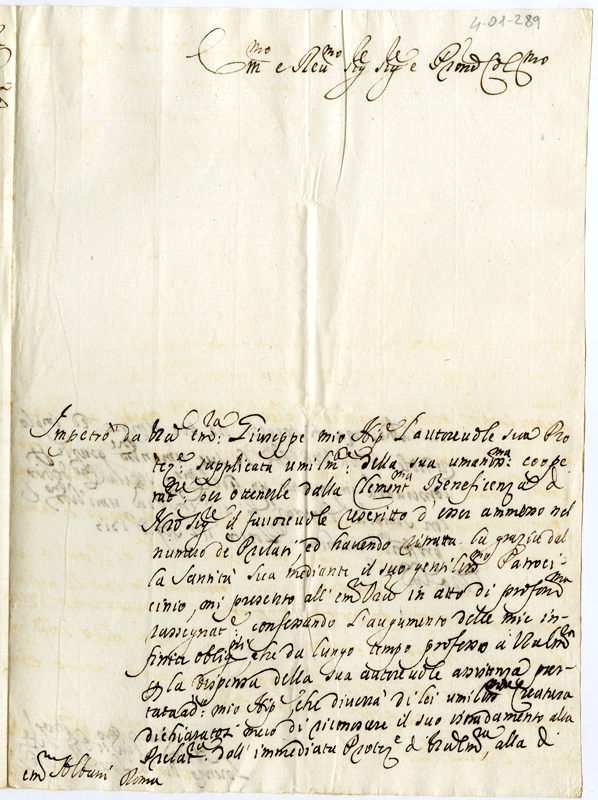 4-01-289
Em.mo e Rev.mo Sig.re Sig.re e Pron Col.mo
Impetrò da Vra Em.za Giuseppe mio Nip.e l'autorevole sua Pro
tez.e supplicata umilm.te della sua uman.ma coope
rat.ne per ottenerle dalla Clement.ma Beneficenza di
Nro Sig.re il favorevole rescritto d'esser ammesso nel
numero de Prelati ed havendo ritratta la grazia dal
la Santità Sua mediante il suo gentiliss.mo Patroci-
cinio, mi presento all'Em. Vra in atto di profond.ma
rassegnat.e confessando l'augumento delle mie in-
finite oblig.ni che da lungo tempo professo a V Em.za
p la dispensa della sua autorevole assistenza pre-
stata ad.o mio Nip.e che diverrà di lei umiliss.ma Creatura
dichiarandosi meco di riconoscere il suo innalzamento alla
Prelat.ra dall'immediata Protez.e di V Em.za, alla di
Em. Albani Roma